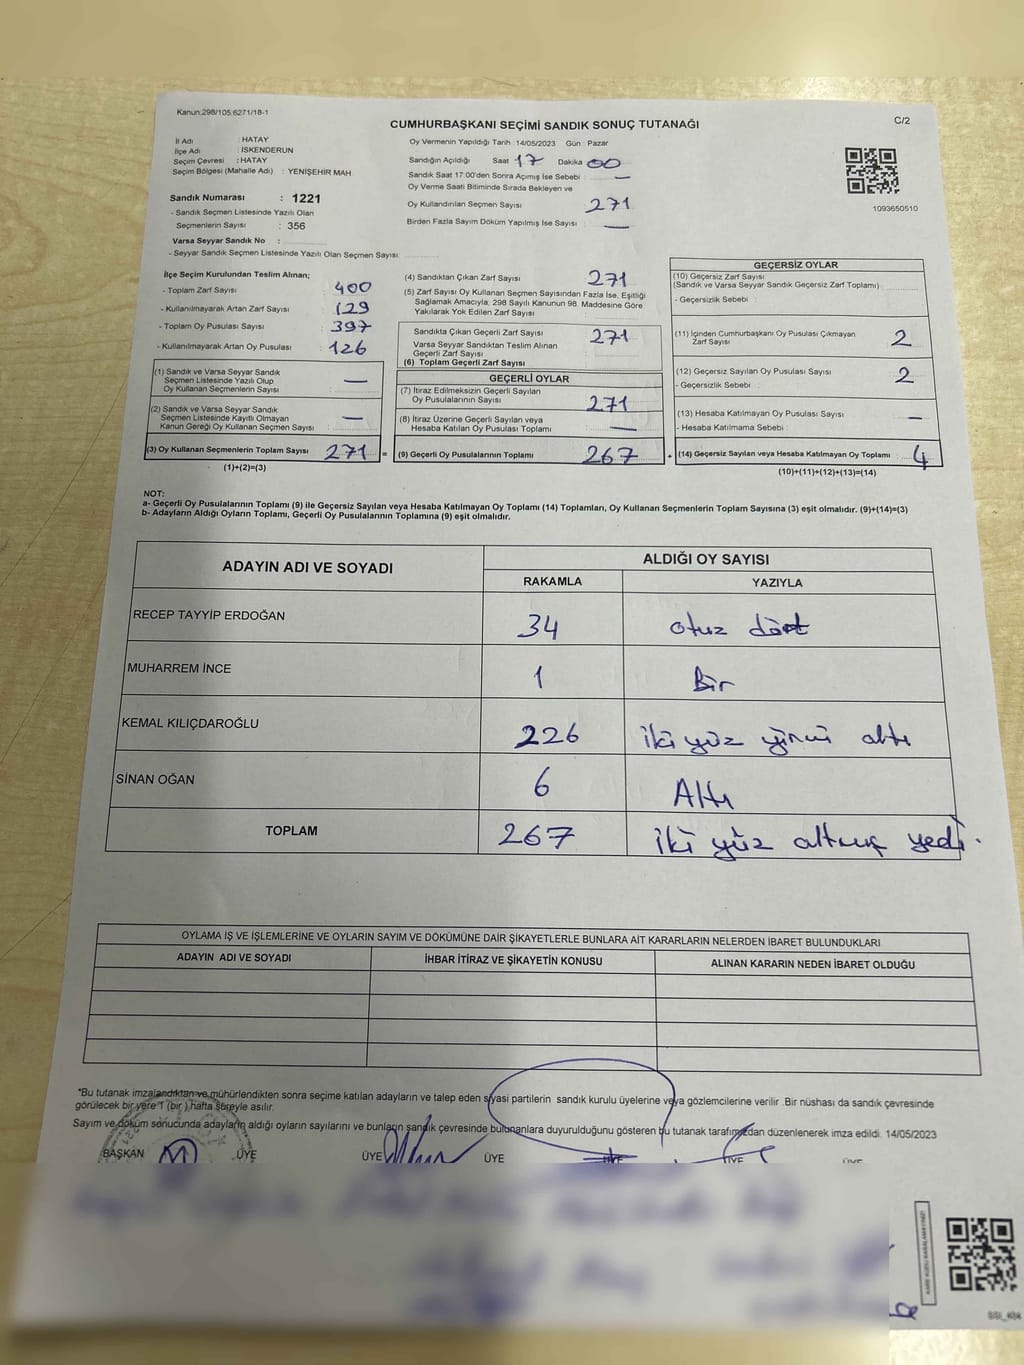 Kanun:298/105;6271/18-1
C/2
CUMHURBAŞKANI SEÇİMİ SANDIK SONUÇ TUTANAĞI
İl Adı : HATAY
İlçe Adı : İSKENDERUN
Seçim Çevresi : HATAY
Seçim Bölgesi (Mahalle Adı) : YENİŞEHİR MAH.
Sandık Numarası : 1221
- Sandık Seçmen Listesinde Yazılı Olan
Seçmenlerin Sayısı : 356
Varsa Seyyar Sandık No :
- Seyyar Sandık Seçmen Listesinde Yazılı Olan Seçmen Sayısı:
Oy Vermenin Yapıldığı Tarih :14/05/2023 Gün : Pazar
Sandığın Açıldığı Saat 17 Dakika 00
Sandık Saat 17:00'den Sonra Açımış İse Sebebi : —
Oy Verme Saati Bitiminde Sırada Bekleyen ve
Oy Kullandırılan Seçmen Sayısı : 271
Birden Fazla Sayım Döküm Yapılmış İse Sayısı : —
1093650510
İlçe Seçim Kurulundan Teslim Alınan;
- Toplam Zarf Sayısı : 400
- Kullanılmayarak Artan Zarf Sayısı : 129
- Toplam Oy Pusulası Sayısı : 397
- Kullanılmayarak Artan Oy Pusulası : 126
(1) Sandık ve Varsa Seyyar Sandık
Seçmen Listesinde Yazılı Olup
Oy Kullanan Seçmenlerin Sayısı : —
(2) Sandık ve Varsa Seyyar Sandık
Seçmen Listesinde Kayıtlı Olmayan
Kanun Gereği Oy Kullanan Seçmen Sayısı : —
(3) Oy Kullanan Seçmenlerin Toplam Sayısı : 271 =
(1)+(2)=(3)
(4) Sandıktan Çıkan Zarf Sayısı : 271
(5) Zarf Sayısı Oy Kullanan Seçmen Sayısından Fazla İse, Eşitliği
Sağlamak Amacıyla; 298 Sayılı Kanunun 98. Maddesine Göre
Yakılarak Yok Edilen Zarf Sayısı :
Sandıkta Çıkan Geçerli Zarf Sayısı : 271
Varsa Seyyar Sandıktan Teslim Alınan
Geçerli Zarf Sayısı
(6) Toplam Geçerli Zarf Sayısı :
GEÇERLİ OYLAR
(7) İtiraz Edilmeksizin Geçerli Sayılan
Oy Pusulalarının Sayısı : 271
(8) İtiraz Üzerine Geçerli Sayılan veya
Hesaba Katılan Oy Pusulası Toplamı : —
(9) Geçerli Oy Pusulalarının Toplamı : 267 +
GEÇERSİZ OYLAR
(10) Geçersiz Zarf Sayısı
(Sandık ve Varsa Seyyar Sandık Geçersiz Zarf Toplamı) :
- Geçersizlik Sebebi :
(11) İçinden Cumhurbaşkanı Oy Pusulası Çıkmayan
Zarf Sayısı : 2
(12) Geçersiz Sayılan Oy Pusulası Sayısı : 2
- Geçersizlik Sebebi :
(13) Hesaba Katılmayan Oy Pusulası Sayısı : —
- Hesaba Katılmama Sebebi :
(14) Geçersiz Sayılan veya Hesaba Katılmayan Oy Toplamı : 4
(10)+(11)+(12)+(13)=(14)
NOT:
a- Geçerli Oy Pusulalarının Toplamı (9) ile Geçersiz Sayılan veya Hesaba Katılmayan Oy Toplamı (14) Toplamları, Oy Kullanan Seçmenlerin Toplam Sayısına (3) eşit olmalıdır. (9)+(14)=(3)
b- Adayların Aldığı Oyların Toplamı, Geçerli Oy Pusulalarının Toplamına (9) eşit olmalıdır.
ADAYIN ADI VE SOYADI ALDIĞI OY SAYISI
RAKAMLA YAZIYLA
RECEP TAYYİP ERDOĞAN 34 otuz dört
MUHARREM İNCE 1 Bir
KEMAL KILIÇDAROĞLU 226 iki yüz yirmi altı
SİNAN OĞAN 6 Altı
TOPLAM 267 iki yüz altmış yedi.
OYLAMA İŞ VE İŞLEMLERİNE VE OYLARIN SAYIM VE DÖKÜMÜNE DAİR ŞİKAYETLERLE BUNLARA AİT KARARLARIN NELERDEN İBARET BULUNDUKLARI
ADAYIN ADI VE SOYADI İHBAR İTİRAZ VE ŞİKAYETİN KONUSU ALINAN KARARIN NEDEN İBARET OLDUĞU
*Bu tutanak imzalandıktan ve mühürlendikten sonra seçime katılan adayların ve talep eden siyasi partilerin sandık kurulu üyelerine veya gözlemcilerine verilir .Bir nüshası da sandık çevresinde
görülecek bir yere 1 (bir ) hafta süreyle asılır.
Sayım ve döküm sonucunda adayların aldığı oyların sayılarını ve bunların sandık çevresinde bulunanlara duyurulduğunu gösteren bu tutanak tarafımızdan düzenlenerek imza edildi. 14/05/2023
BAŞKAN ÜYE ÜYE ÜYE ÜYE ÜYE ÜYE